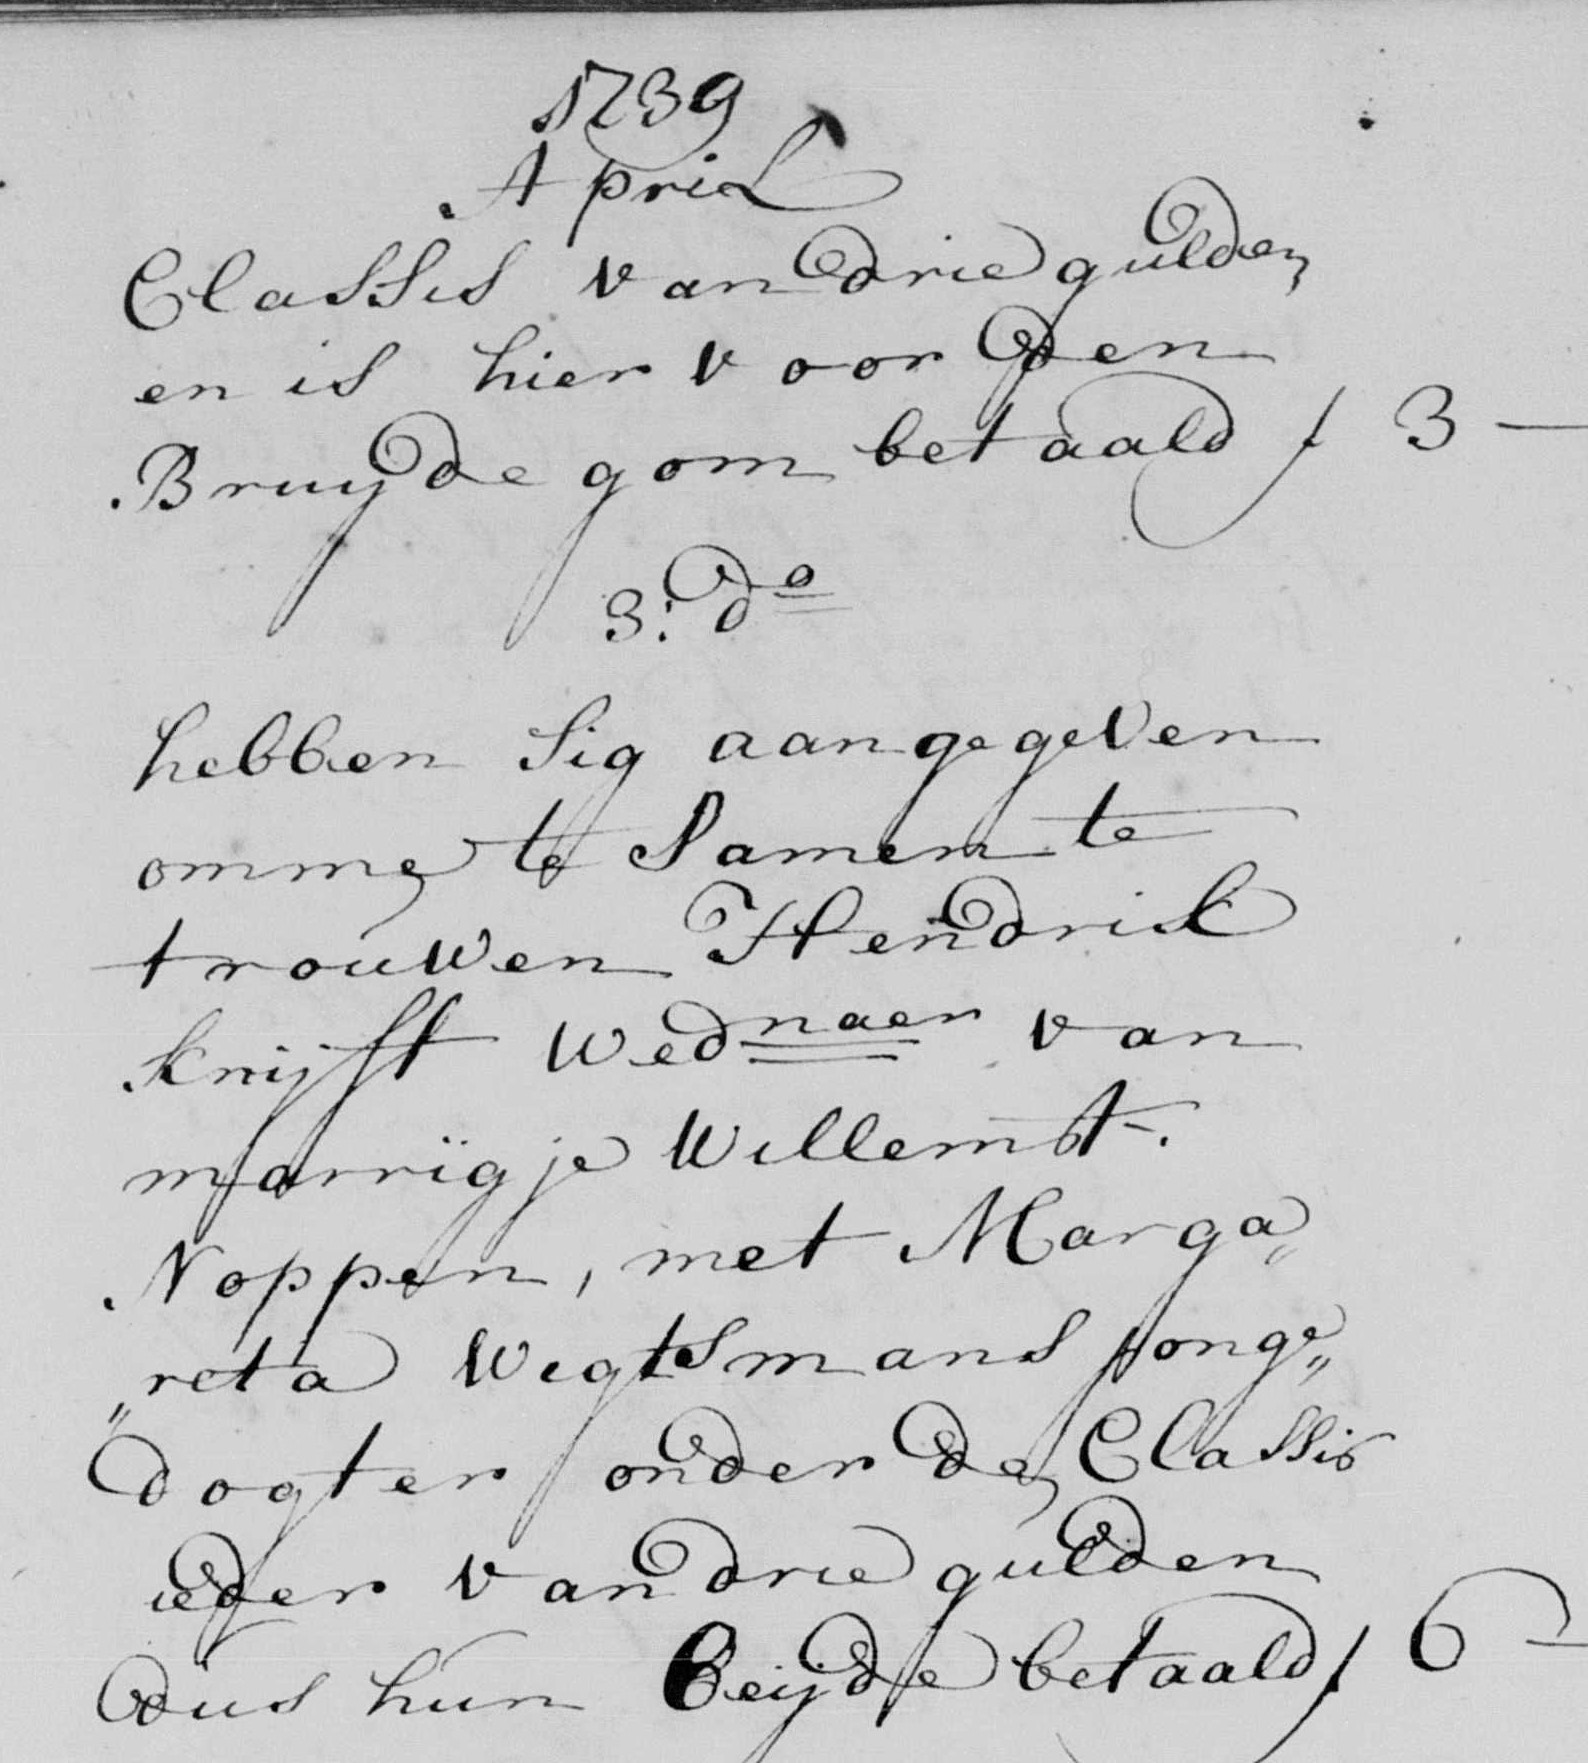 1739
April
Classis van drie gulden
en is hier voor den
Bruydegom betaald ƒ 3 —
3: d<sup>o</sup>
hebben sig aangegeven
omme te Samen te
trouwen Hendrik
knijft wed<sup>naer</sup> van
marrigje Willemst.
Noppen, met Marga„
„reta Wegtsmans jonge„
dogter onder de Classis
ieder van drie gulden
dus hun beijde betaald ƒ 6 —